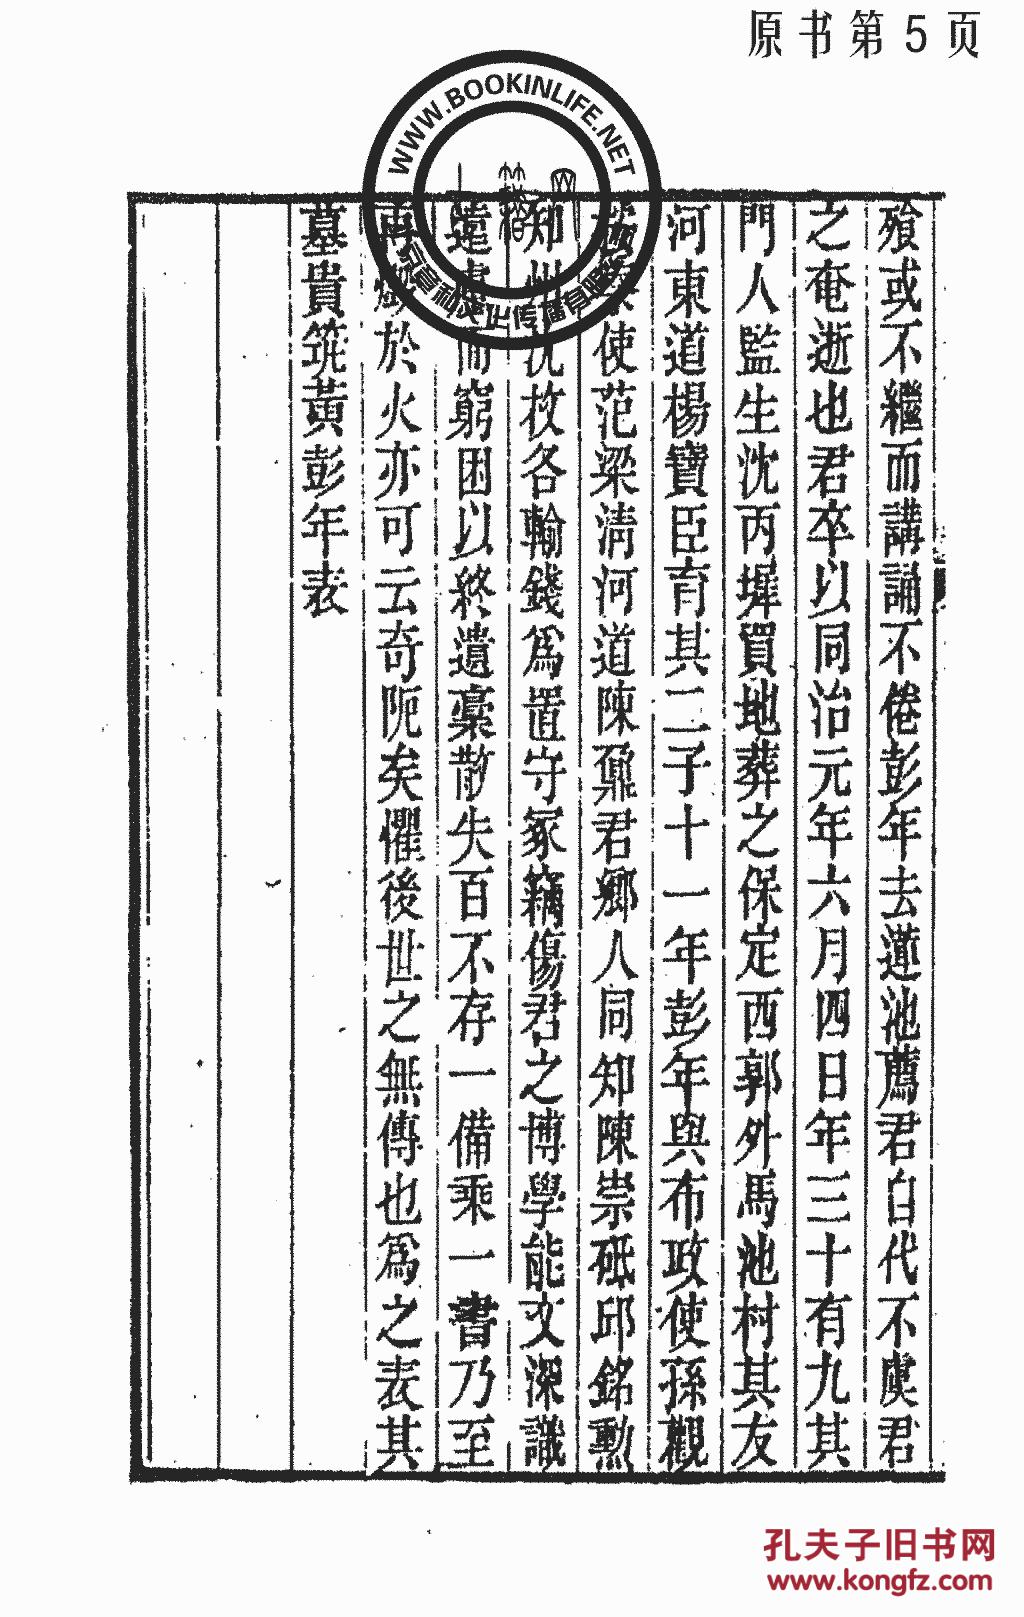 原书第5页
WWW.BOOKINLIFE.NET
飱或不繼而講誦不倦彭年去蓮池薦君自代不虞君
之奄逝也君卒以同治元年六月四日年三十有九其
門人監生沈丙墀買地葬之保定西郭外馬池村其友
河東道楊寶臣育其二子十一年彭年與布政使孫觀
使范梁淸河道陳鼐君鄉人同知陳崇砥邱銘勲
知州沈枚各輸錢爲置守冢竊傷君之博學能文深識
遠慮而窮困以終遺稾散失百不存一備乘一書乃至
再燬於火亦可云奇阨矣懼後世之無傳也爲之表其
墓貴筑黃彭年表
孔夫子旧书网
www.kongfz.com